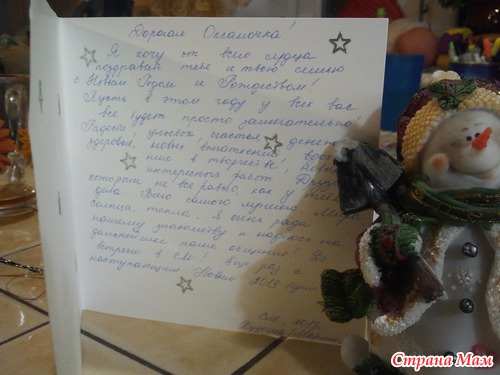 Дорогая Оксаночка!
Я хочу от всего сердца
поздравить тебя и твою семью
с Новым Годом и Рождеством!
Пусть в этом году у всех вас
все будет просто замечательно!
Радости, улыбок, счастья, денег,
здоровья, новых впечатлений,
в творчестве!
интересных работ,
которым не все равно, как у тебя
дела. Всего самого лучшего
солнца, тепла. Я очень рада
нашему знакомству и надеюсь на
дальнейшее наше общение! До
встречи в СМ! Еще раз с
наступающим Новым 2013 годом
Страна Мам